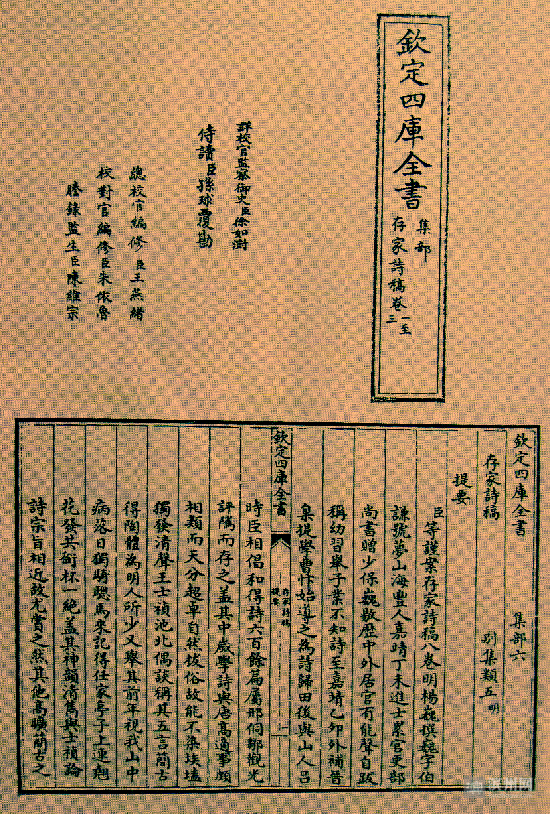 欽定四庫全書
集部
存家詩稿卷一至三
詳校官監察御史臣徐如澍
侍讀臣孫球覆勘
總校官編修臣王燕緒
校對官編修臣朱依魯
謄錄監生臣陳維宗
欽定四庫全書
集部六
存家詩稿
別集類五明
提要
臣等謹案存家詩稿八卷明楊巍撰巍字伯
謙號夢山海豐人嘉靖丁未進士累官吏部
尚書贈少保巍敭歷中外居官有能聲自政
稱幼習舉子業不知詩至嘉靖乙卯外補晉
臬提學曹忭始導之為詩歸田後與山人呂
時臣相倡和得詩六百餘篇屬邢侗鄒觀光
評隲而存之蓋其中歲學詩與唐高適事頗
相類而天分超卓自然拔俗故能不染埃壒
獨發清聲王士禎池北偶談稱其五言簡古
得陶體為明人所少又舉其前年視我山中
病落日獨騎驄馬來記得任家亭子上連翹
花發共銜杯一絕蓋其神韻清雋與士禎論
詩宗旨相近故尤賞之然其他高曠簡古之
欽定四庫全書
存家詩稿
提要
一